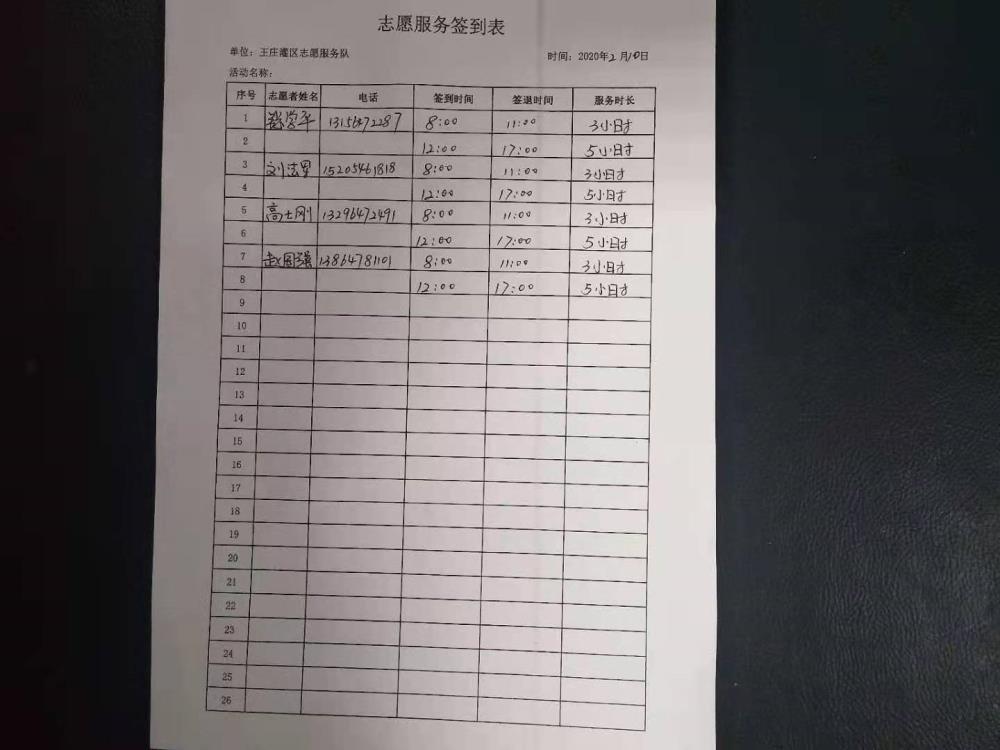 志愿服务签到表
单位：王庄灌区志愿服务队 时间：2020年2月10日
活动名称：
序号 志愿者姓名 电话 签到时间 签退时间 服务时长
1 13156472287 8:00 11:00 3小时
2 12:00 17:00 5小时
3 刘法军 15205461818 8:00 11:00 3小时
4 12:00 17:00 5小时
5 高士刚 13296472491 8:00 11:00 3小时
6 12:00 17:00 5小时
7 赵国强 13864781101 8:00 11:00 3小时
8 12:00 17:00 5小时
9
10
11
12
13
14
15
16
17
18
19
20
21
22
23
24
25
26